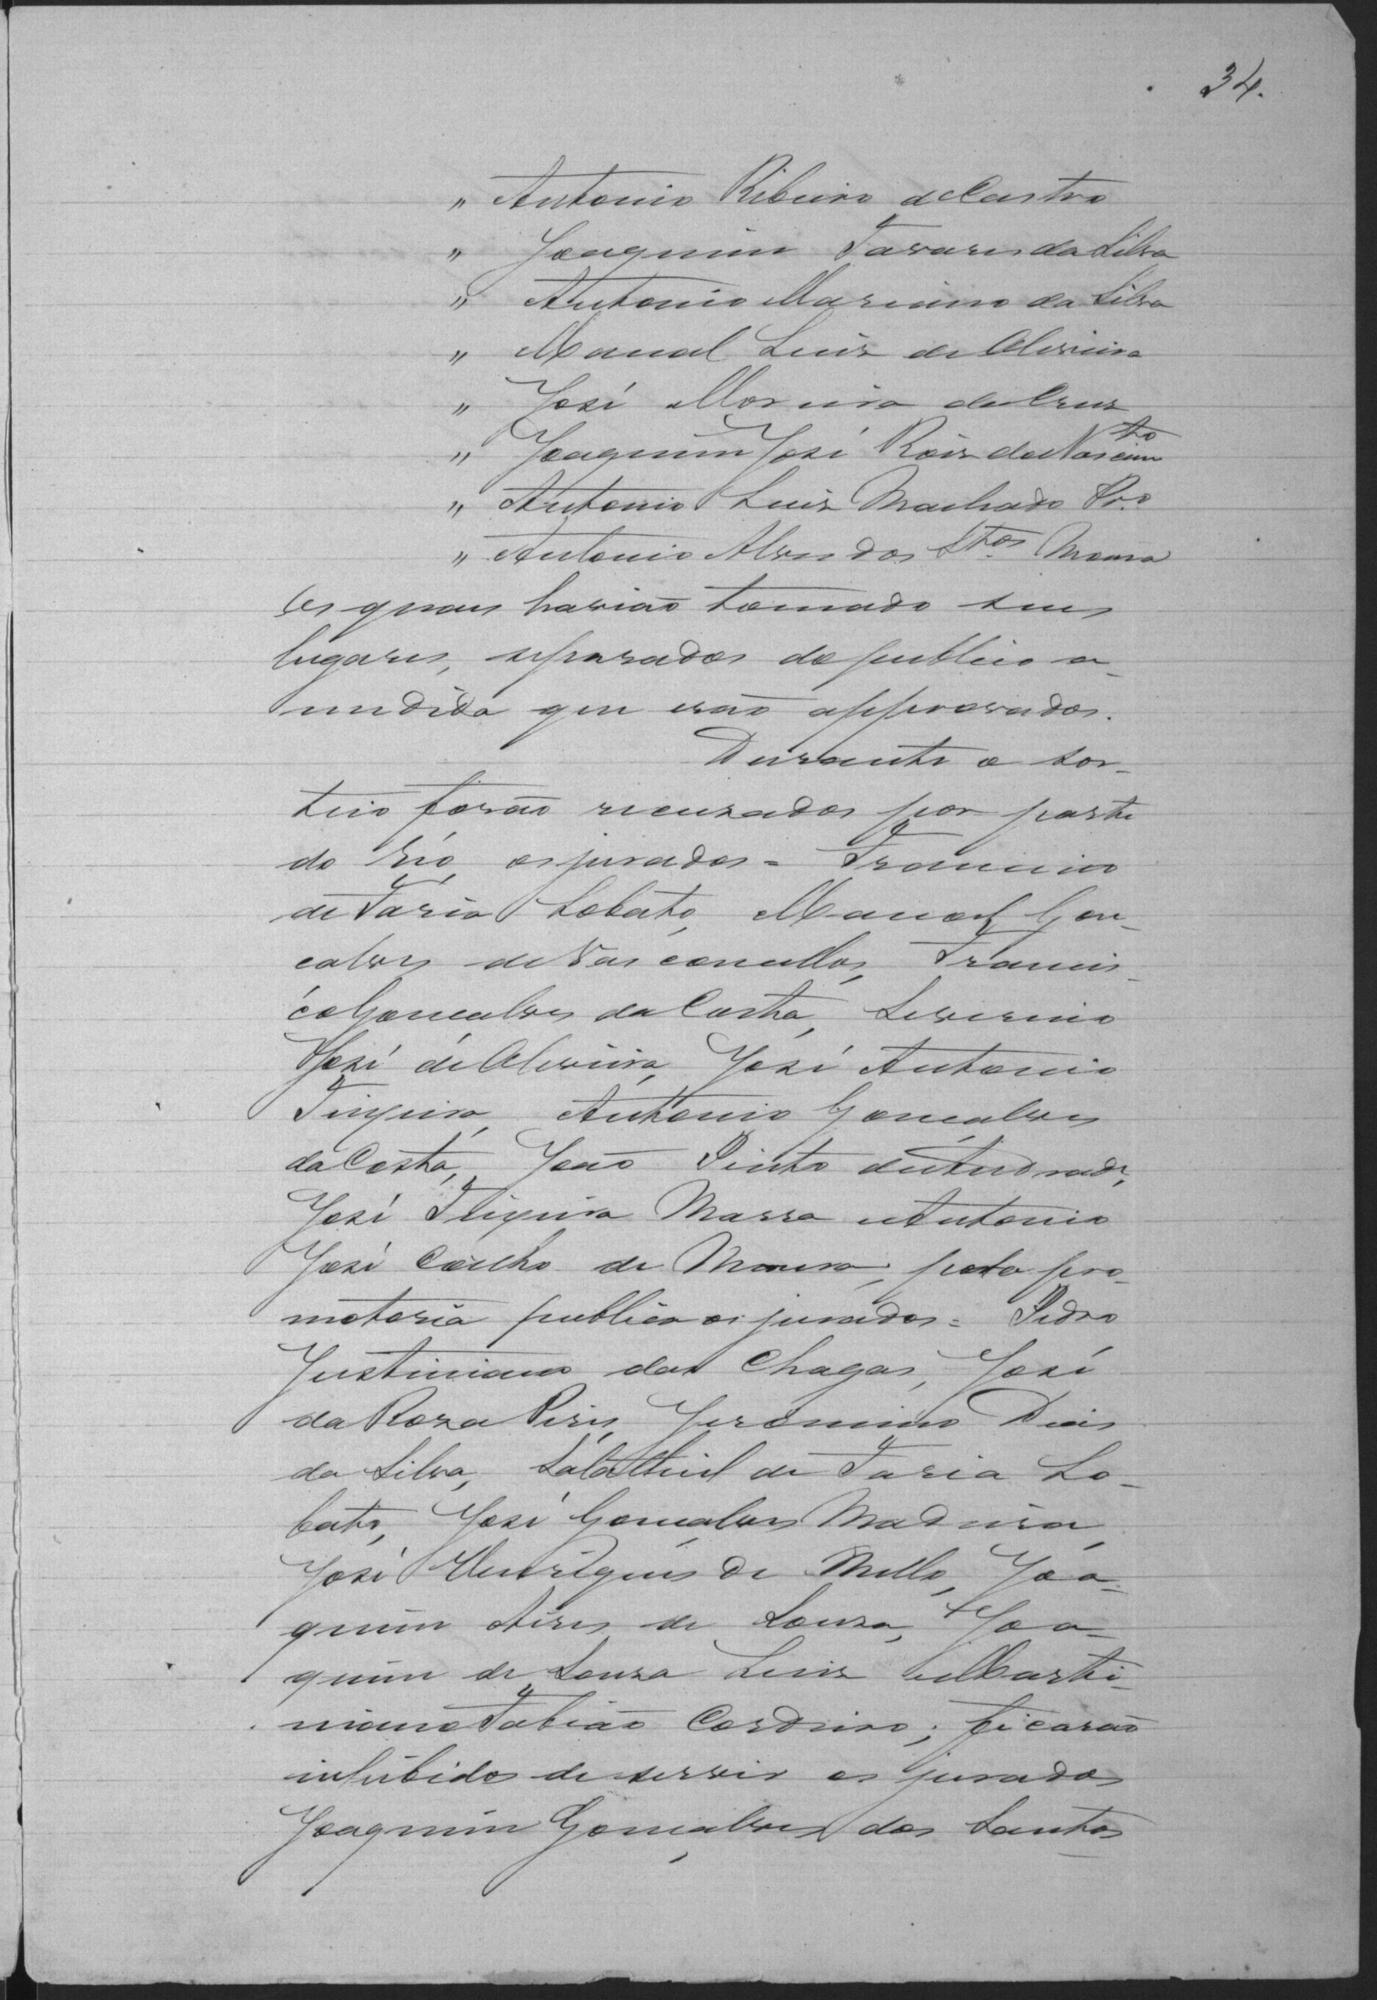 34.
" Antonio Ribeiro de Castro
" Joaquim Tavares da Silva
" Antonio Mariano da Silva
" Manoel Luiz de Oliveira
" José Moreira da Cruz
" Joaquim José Roiz do Nascimto
" Antonio Luiz Machado Pro
" Antonio Alves dos Stos Moura
os quaes havião tomado seus
lugares, separados do publico a
medida que erão approvados.
Durante o sor-
teio forão recuzados por parte
do réo, os jurados = Francisco
de Faria Lobato, Manoel Gon-
calves de Vasconcellos, Francis-
co Goncalves da Costa, Severino
José de Oliveira, José Antonio
Teixeira, Antonio Gonçalves
da Costa, João Pinto de Andrade,
José Teixeira Massa e Antonio
José Coelho de Moura; pela pro-
motoria publica os jurados = Pedro
Justiniano das Chagas, José
da Roza Pires, Jeronimo Dias
da Silva, Salathiel de Faria Lo-
bato, José Gonçalves Madeira,
José Henriques de Mello, Joa-
quim Aires de Souza, Joa-
quim de Souza Luiz e Marti-
niano Fabião Cordeiro; ficarão
inhibidos de servir os jurados
Joaquim Gonçalves dos Santos